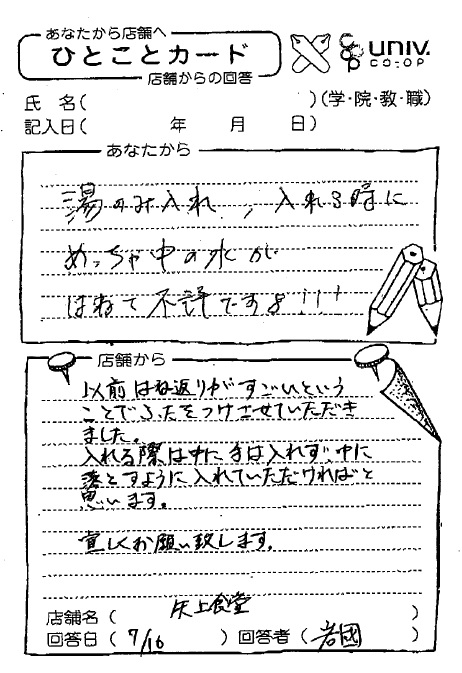 あなたから店舗へ
ひとことカード
店舗からの回答
univ.
CO-OP
氏 名(　　　　　)(学・院・教・職)
記入日(　　　年　　月　　日)
あなたから
湯のみ入れ、入れる時に
めっちゃ中の水が
はねて不評ですよ!!!
店舗から
以前はね返りがすごいという
ことで、ふたをつけさせていただき
ました。
入れる際は中に手は入れず中に
落とすように入れていただければと
思います。
宜しくお願い致します。
店舗名(　矢上食堂　)
回答日(7/16)回答者(岩國)